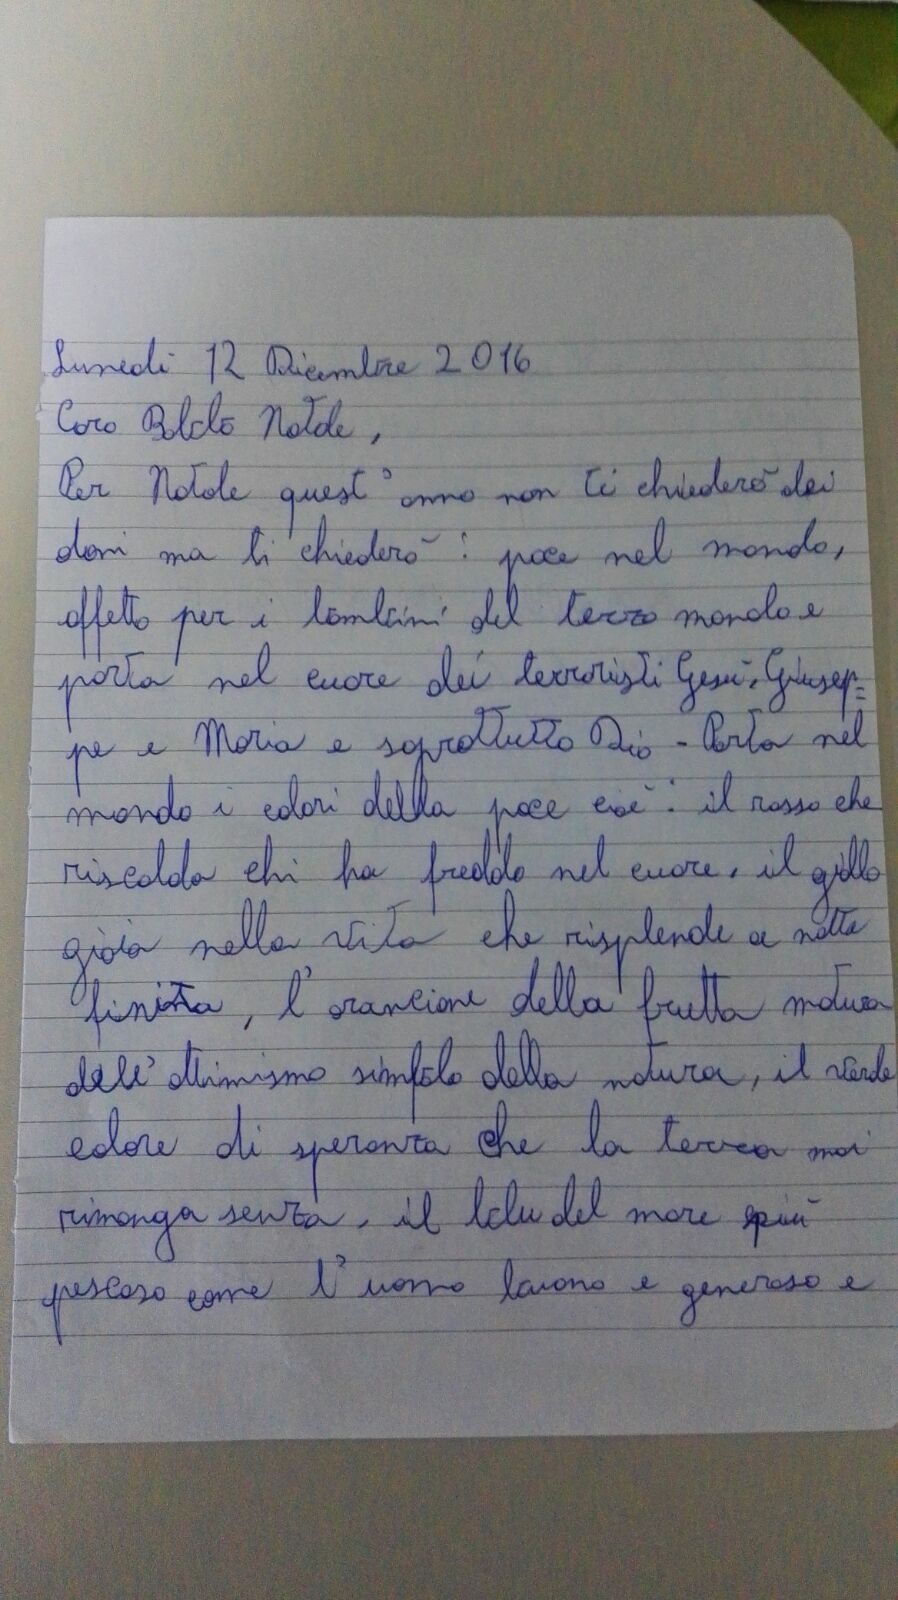 Lunedì 12 Dicembre 2016
Caro Babbo Natale,
Per Natale quest'anno non ti chiederò dei
doni ma ti chiederò: pace nel mondo,
affetto per i bambini del terzo mondo e
porta nel cuore dei terroristi Gesù, Giusep=
pe e Maria e soprattutto Dio - Porta nel
mondo i colori della pace cioè: il rosso che
riscalda chi ha freddo nel cuore, il giallo
gioia nella vita che risplende a notte
finita, l'arancione della frutta matura
dell'ottimismo simbolo della natura, il verde
colore di speranza che la terra mai
rimanga senza, il blu del mare più
pescoso come l'uomo buono e generoso e